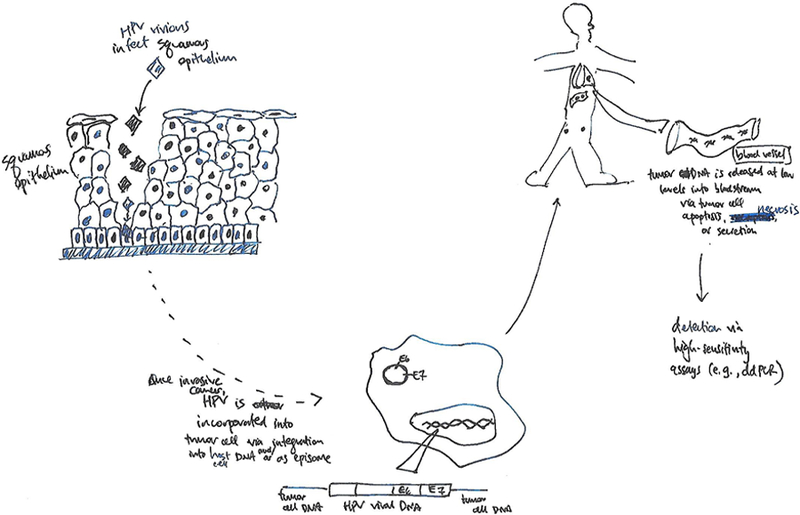 HPV virions
infect squamous
epithelium
squamos
epithelium
blood vessel
tumor DNA is released at low
levels into bloodstream
via tumor cell
apoptosis, necrosis,
or secretion
detection via
high-sensitivity
assays (e.g., ddPCR)
Once invasive
cancer,
HPV is
incorporated into
tumor cell via integration
into host DNA and/or as episome
cell
E6
E7
E6 E7
tumor
cell DNA
HPV viral DNA
tumor
cell DNA